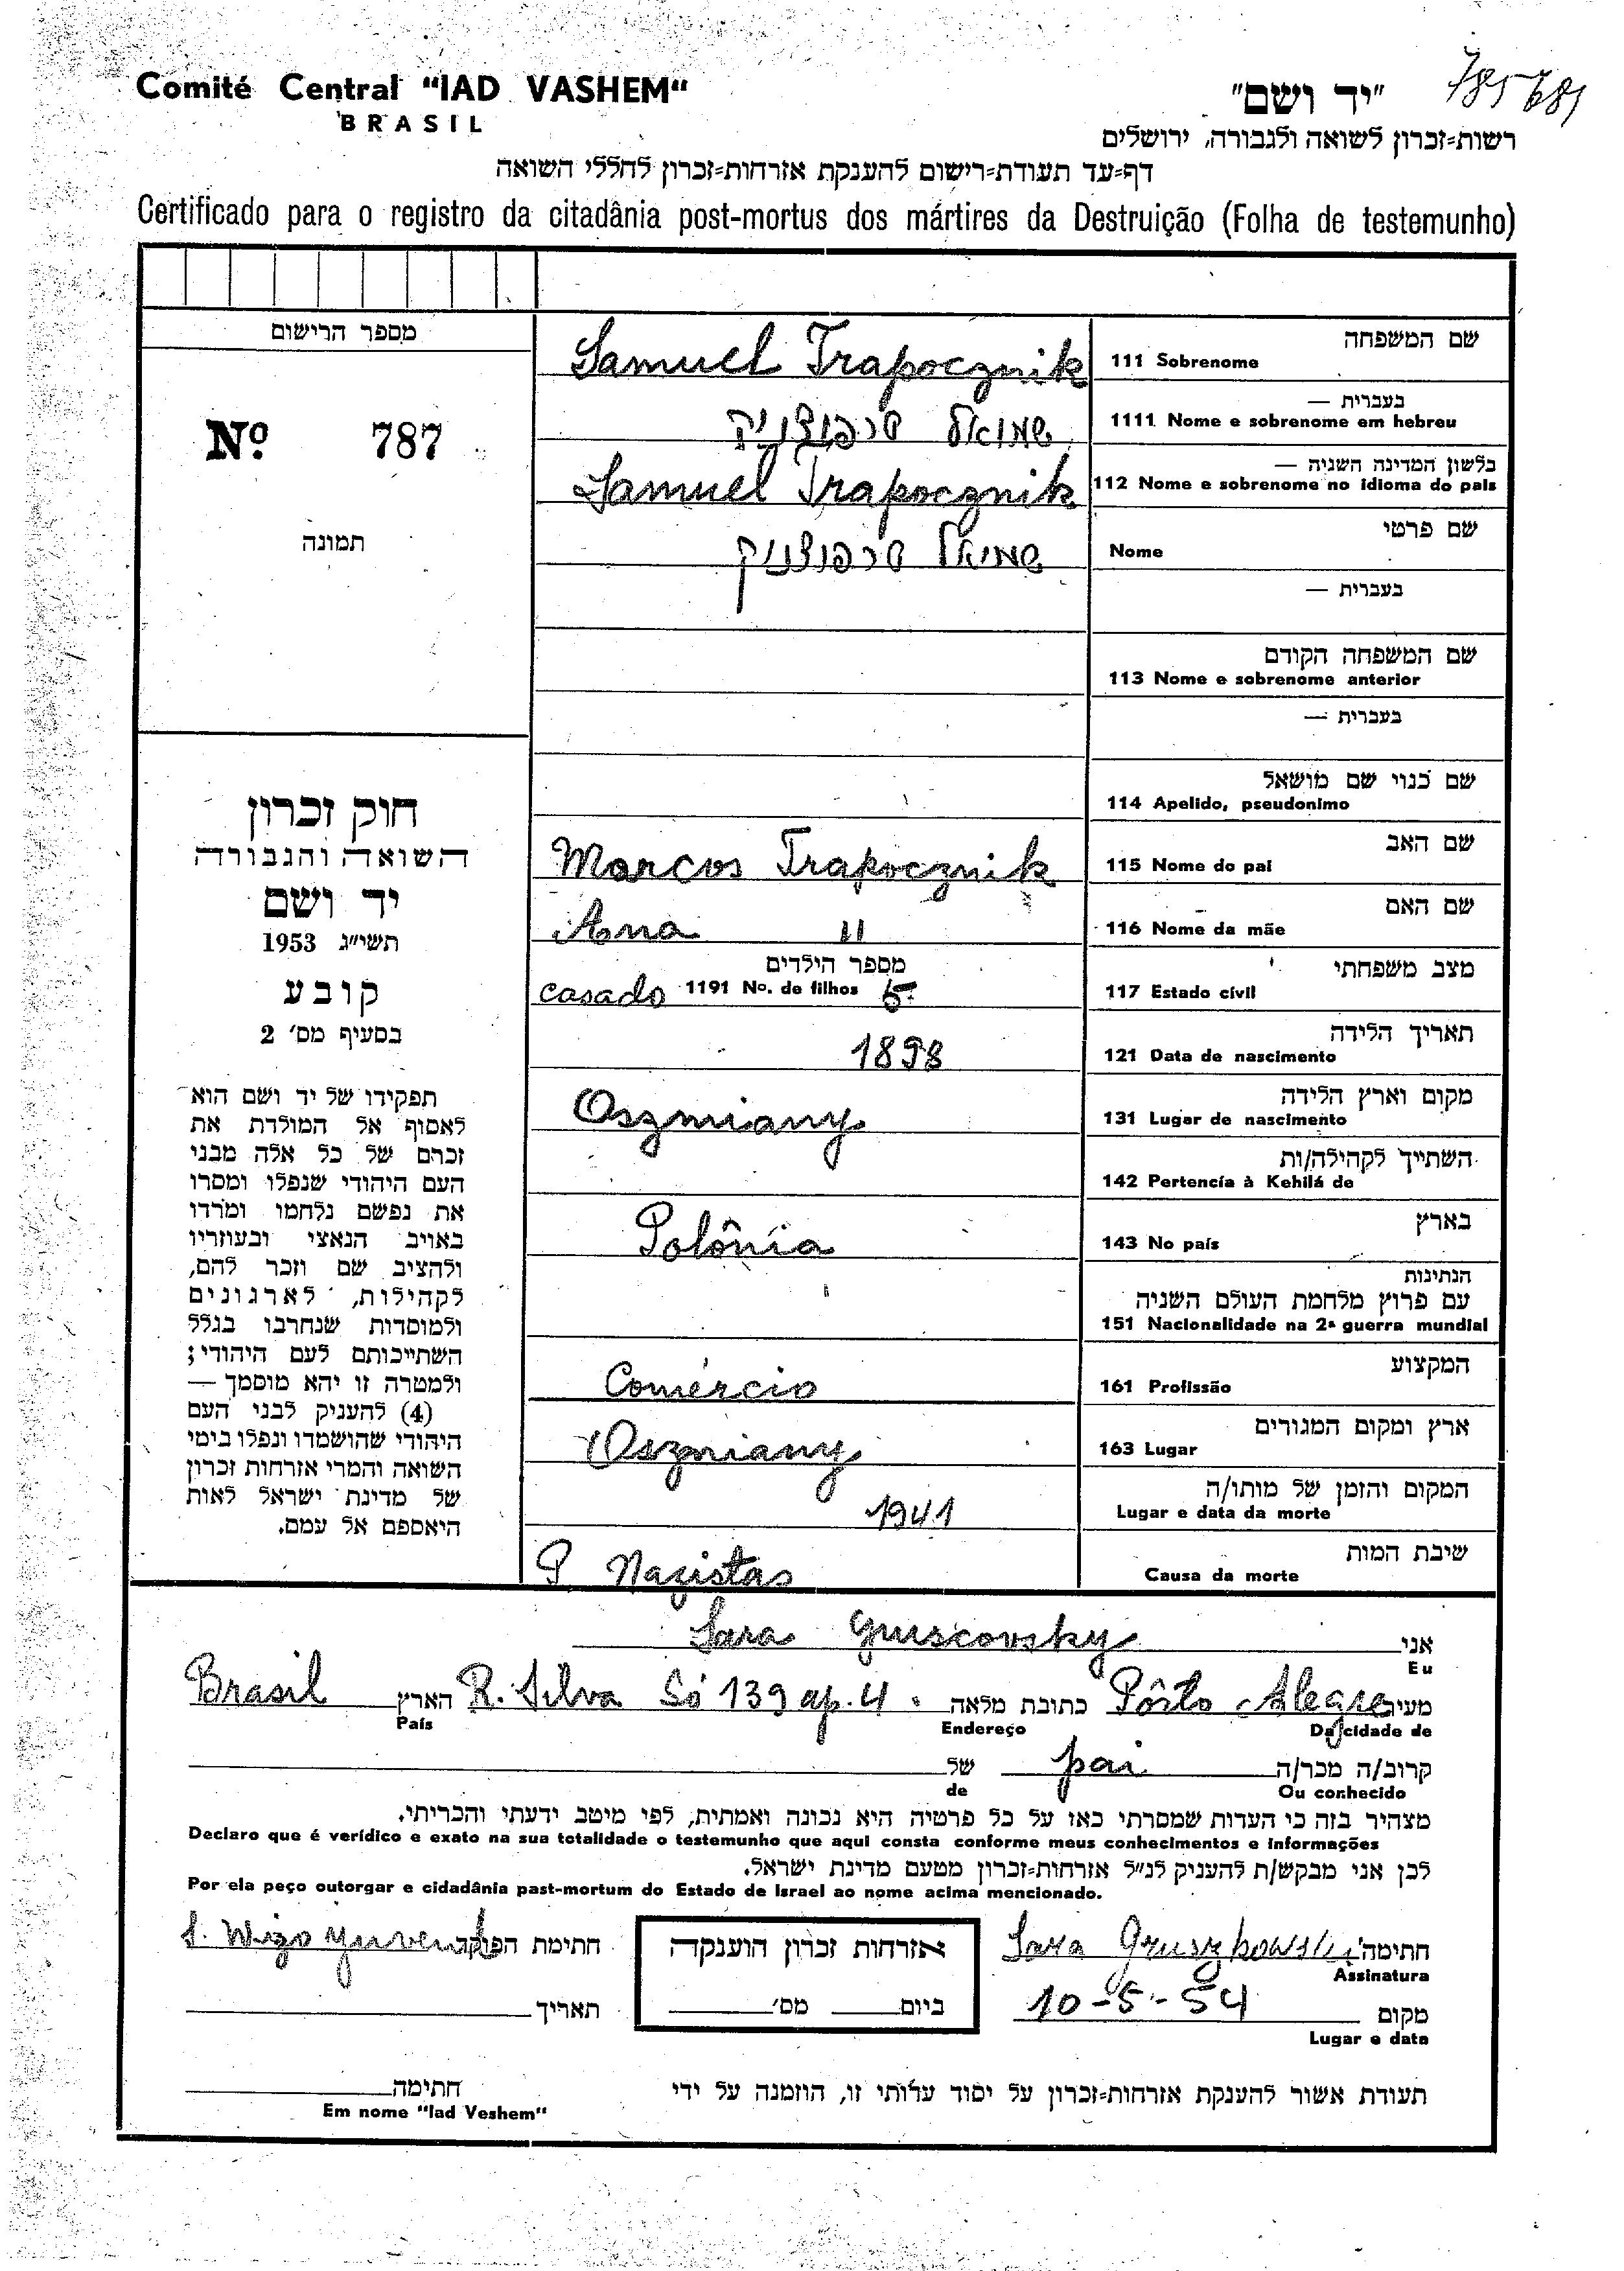 Comité Central "IAD VASHEM"
BRASIL
"יד ושם"
785681
רשות-זכרון לשואה ולגבורה, ירושלים
דף-עד תעודת-רישום להענקת אזרחות-זכרון לחללי השואה
Certificado para o registro da citadânia post-mortus dos mártires da Destruição (Folha de testemunho)
מספר הרישום
No. 787
תמונה
שם המשפחה
111 Sobrenome
Samuel Trapocznik
בעברית —
1111 Nome e sobrenome em hebreu
שמואל טרפוצניק
בלשון המדינה השניה —
112 Nome e sobrenome no idioma do país
Samuel Trapocznik
שם פרטי
Nome
שמואל טרפוצניק
בעברית —
שם המשפחה הקודם
113 Nome e sobrenome anterior
בעברית —
שם כנוי שם מושאל
114 Apelido, pseudonimo
שם האב
115 Nome do pai
Marcos Trapocznik
שם האם
116 Nome da mãe
Ana "
מצב משפחתי
117 Estado cívil
casado
מספר הילדים
1191 No. de filhos 5
תאריך הלידה
121 Data de nascimento
1898
מקום וארץ הלידה
131 Lugar de nascimento
Oszmiany
השתייך לקהילה/ות
142 Pertencía à Kehilá de
בארץ
143 No país
Polônia
הנתינות
עם פרוץ מלחמת העולם השניה
151 Nacionalidade na 2ª guerra mundial
המקצוע
161 Profissão
Comércio
ארץ ומקום המגורים
163 Lugar
Oszmiany
המקום והזמן של מותו/ה
Lugar e data da morte
1941
שיבת המות
Causa da morte
P. Nazistas
חוק זכרון
השואה והגבורה
יד ושם
תשי"ג 1953
קובע
בסעיף מס' 2
תפקידו של יד ושם הוא
לאסוף אל המולדת את
זכרם של כל אלה מבני
העם היהודי שנפלו ומסרו
את נפשם נלחמו ומרדו
באויב הנאצי ובעוזריו
ולהציב שם וזכר להם,
לקהילות, לארגונים
ולמוסדות שנחרבו בגלל
השתייכותם לעם היהודי;
ולמטרה זו יהא מוסמך —
(4) להעניק לבני העם
היהודי שהושמדו ונפלו בימי
השואה והמרי אזרחות זכרון
של מדינת ישראל לאות
היאספם אל עמם.
אני
Eu
Sara Gruscovsky
מעיר
Da cidade de
Pôrto Alegre
כתובת מלאה
Endereço
R. Silva Só 139 ap. 4.
הארץ
País
Brasil
קרוב/ה מכר/ה
Ou conhecido
pai
של
de
מצהיר בזה כי העדות שמסרתי כאז על כל פרטיה היא נכונה ואמתית, לפי מיטב ידעתי והכריתי.
Declaro que é verídico e exato na sua totalidade o testemunho que aqui consta conforme meus conhecimentos e informações
לכן אני מבקש/ת להעניק לנ"ל אזרחות-זכרון מטעם מדינת ישראל.
Por ela peço outorgar e cidadânia past-mortum do Estado de Israel ao nome acima mencionado.
חתימה
Assinatura
Sara Gruszkowski
מקום
Lugar e data
10-5-54
אזרחות זכרון הוענקה
ביום ____ מס' ____
חתימת הפוקד
S. Wizo Juvenil
תאריך
תעודת אשור להענקת אזרחות-זכרון על יסוד עדותי זו, הוזמנה על ידי
חתימה
Em nome "Iad Veshem"